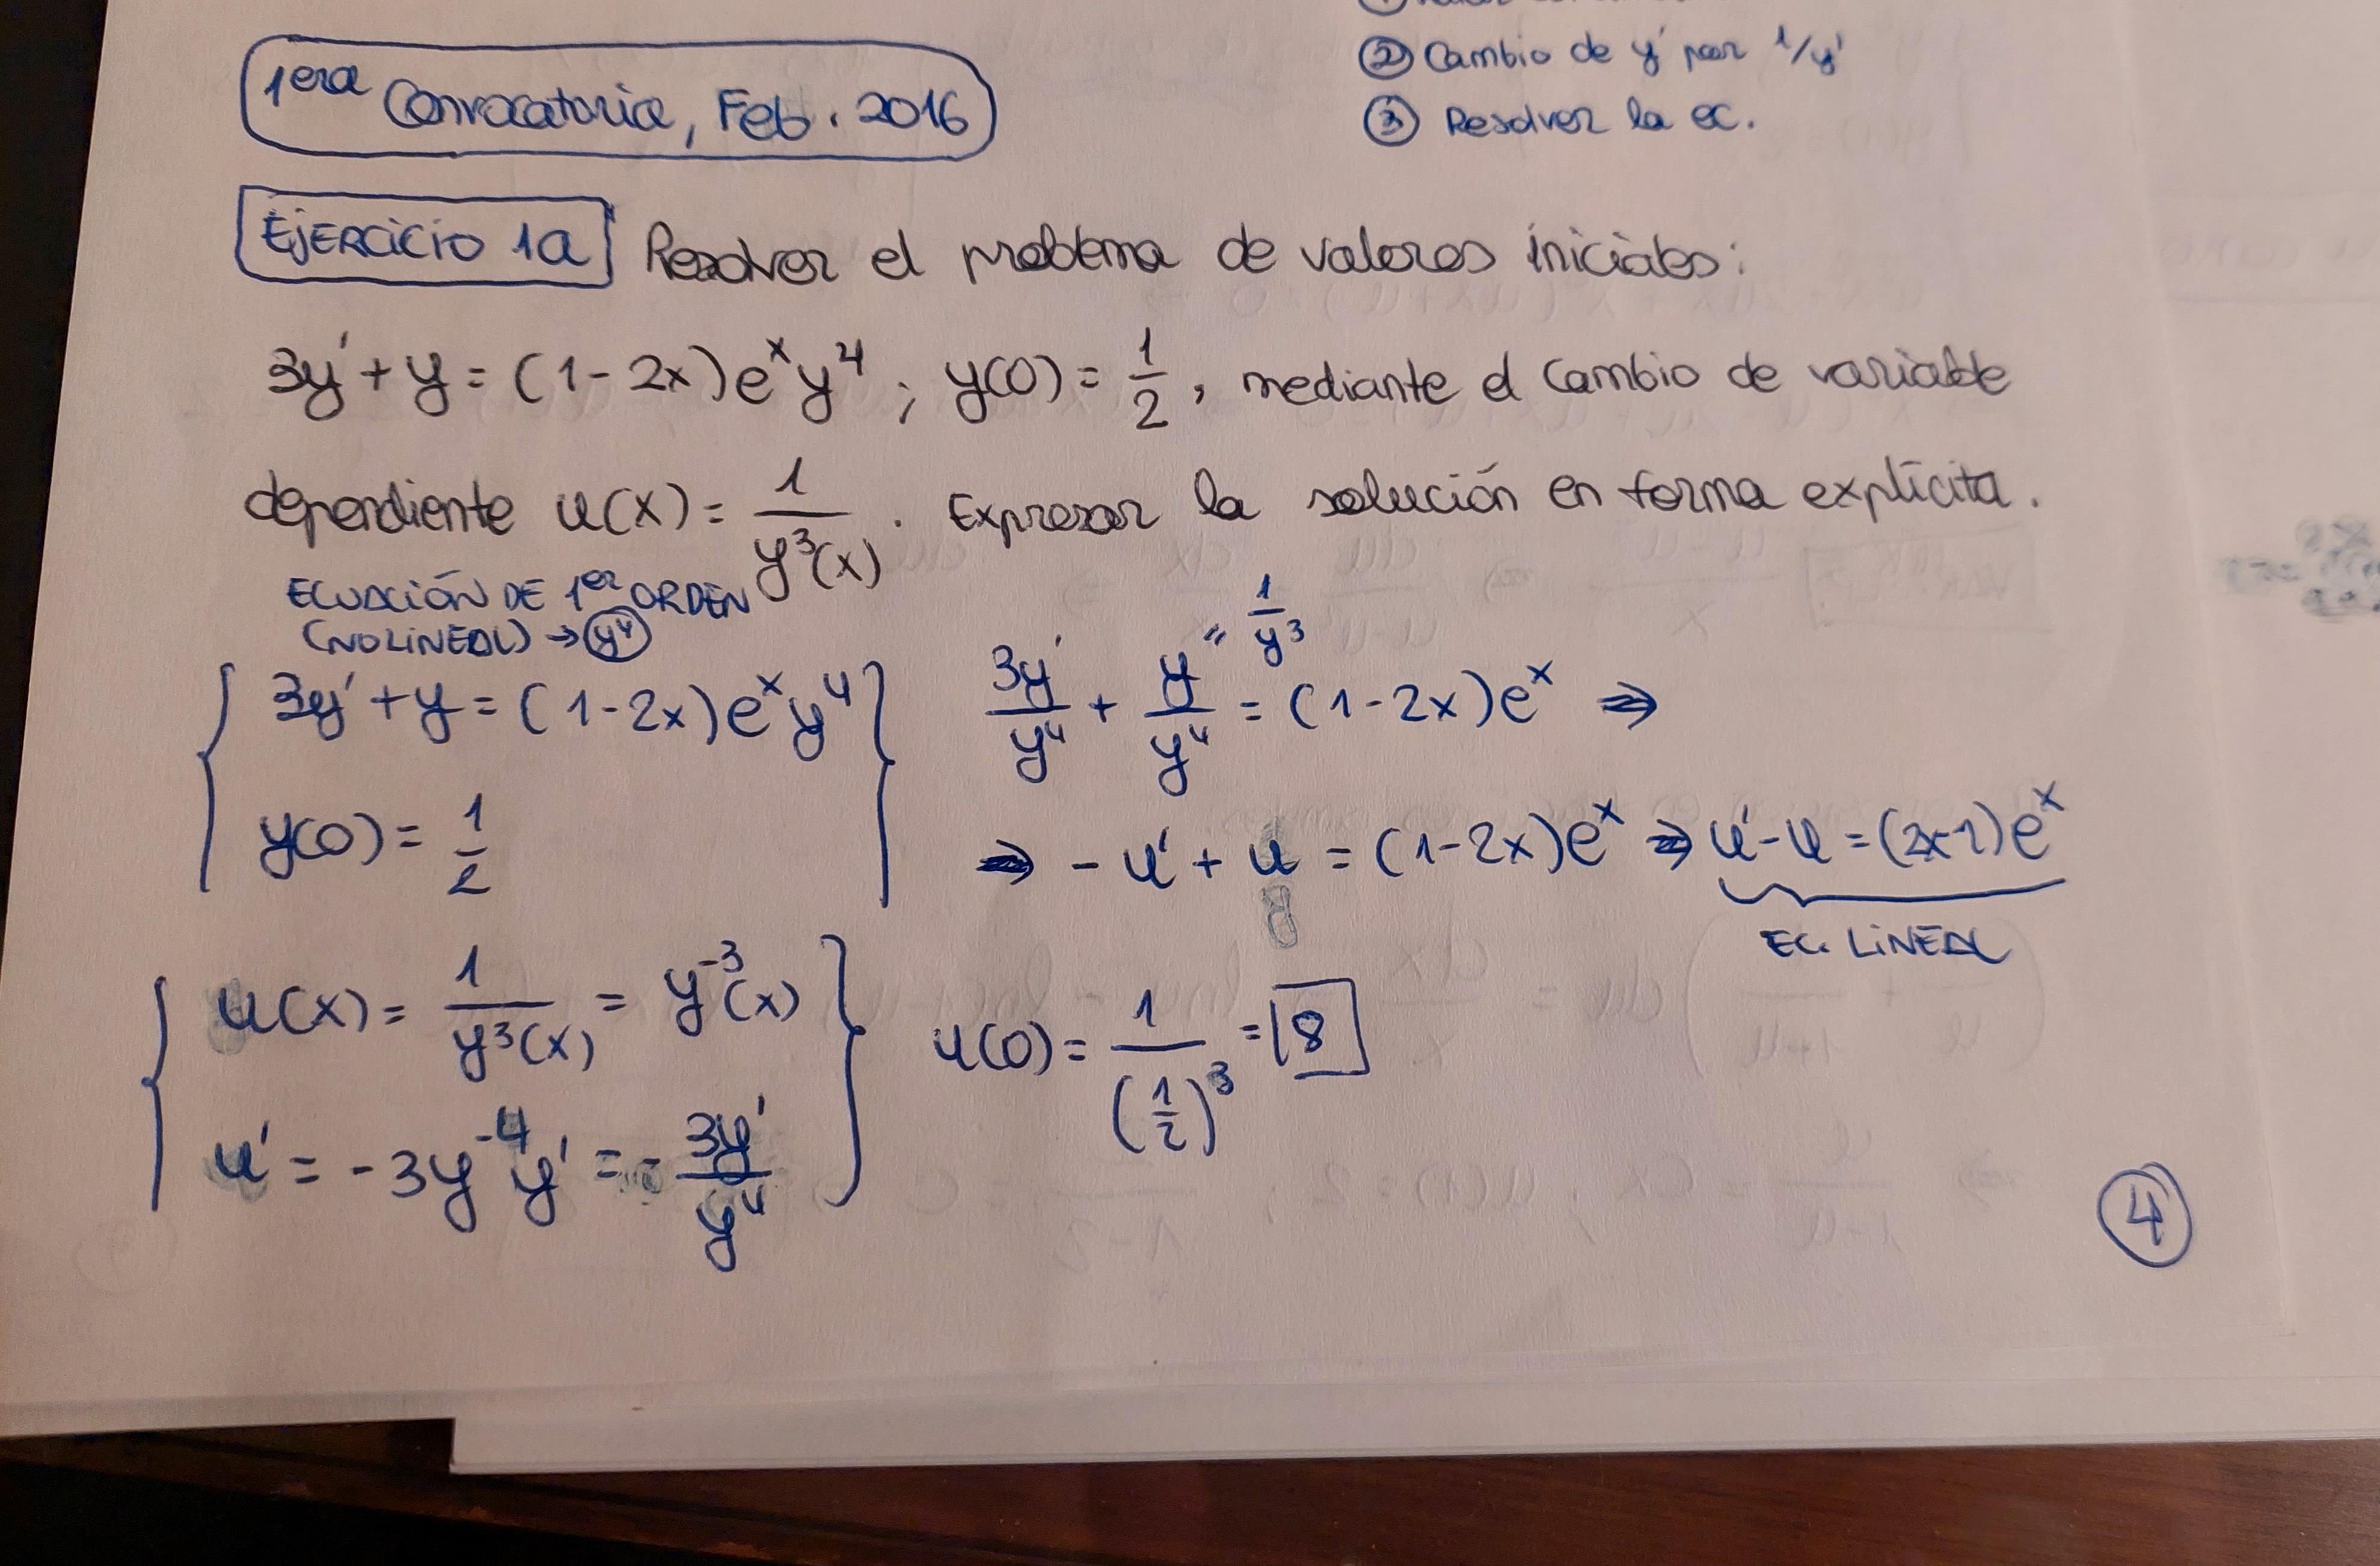 ② Cambio de y' por 1/y'
③ Resolver la ec.
1era Convocatoria, Feb. 2016
EJERCICIO 1a Resolver el problema de valores iniciales:
3y' + y = (1 - 2x)eˣy⁴ ; y(0) = 1/2, mediante el cambio de variable
dependiente u(x) = 1/y³(x). Expresar la solución en forma explícita.
ECUACIÓN DE 1er ORDEN
(NO LINEAL) → y⁴
3y' + y = (1 - 2x)eˣy⁴
y(0) = 1/2
3y'/y⁴ + y/y⁴ = (1 - 2x)eˣ ⇒
" = 1/y³
⇒ -u' + u = (1 - 2x)eˣ ⇒ u' - u = (2x-1)eˣ
EC. LINEAL
u(x) = 1/y³(x) = y⁻³(x)
u' = -3y⁻⁴y' = -3y'/y⁴
u(0) = 1/(1/2)³ = 8
4